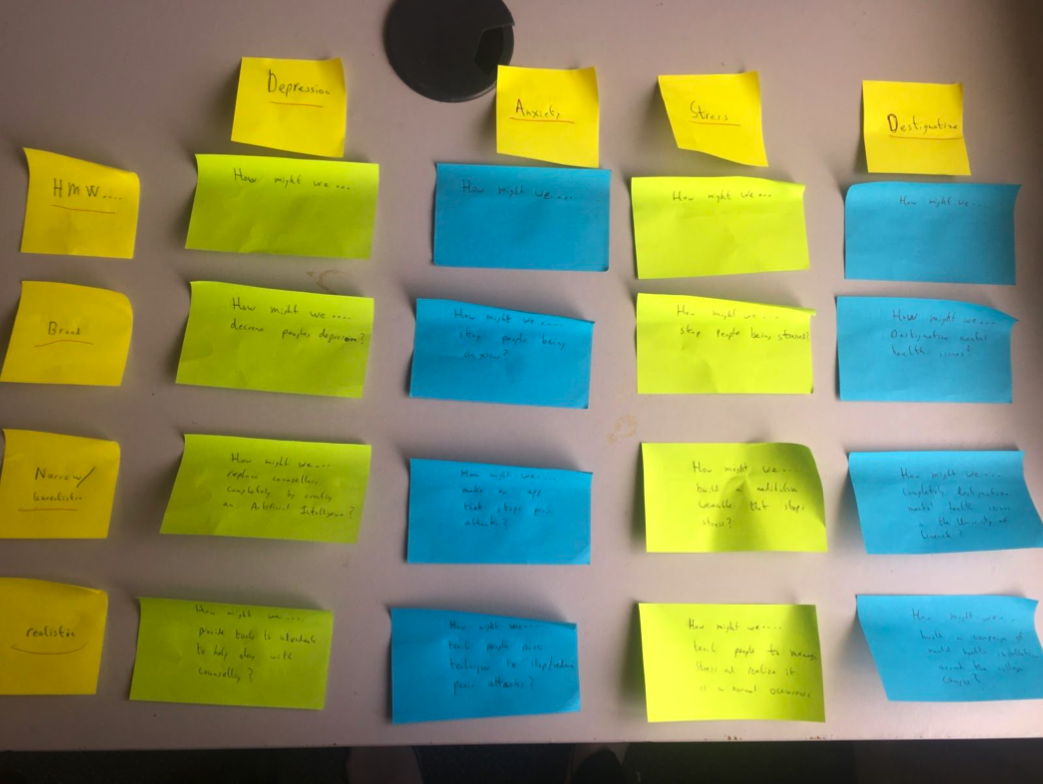 Depression
Anxiety
Stress
Destigmatise
HMW....
How might we....
How might we....
How might we....
How might we...
Broad
How might we....
decrease peoples depression?
How might we....
stop people being
How might we....
stop people being stressed?
How might we....
Destigmatise mental
health issues?
Narrow/
How might we....
replace counsellors
completely by creating
an Artificial Intelligence?
How might we....
make an app
that stops panic
attacks?
How might we....
build a meditation
wearable that stops
stress?
How might we....
completely destigmatise
mental health issues
in the University of
realistic
How might we....
provide tools to students
to help along with
counselling?
How might we....
teach people
technique to stop/reduce
panic attacks?
How might we....
teach people to manage
stress and realise it
is a normal occurrence
How might we....
a campaign of
mental health
around the college
campus?